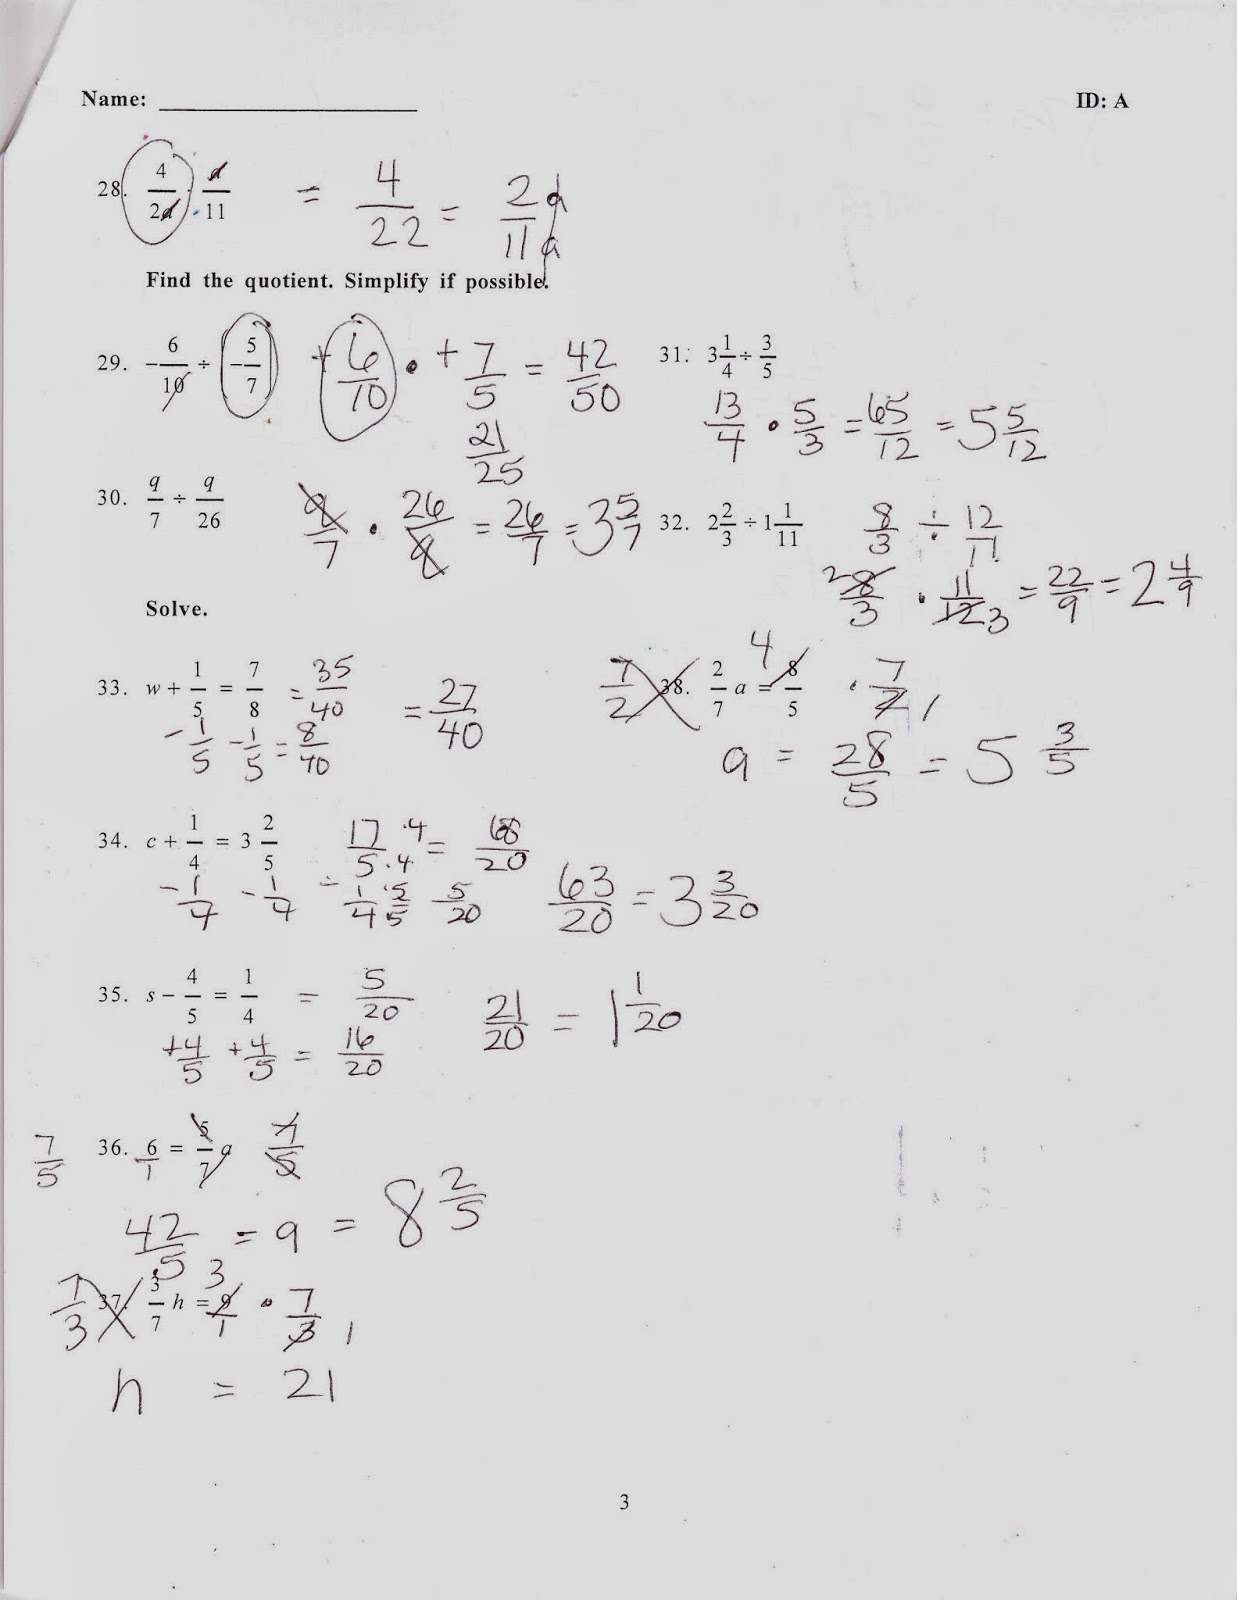 Name: ____________ ID: A
28. 4/2d · d/11 = 4/22 = 2d/11d
Find the quotient. Simplify if possible.
29. -6/10 ÷ -5/7 +6/10 • +7/5 = 42/50
21/25
31. 3 1/4 ÷ 3/5
13/4 • 5/3 = 65/12 = 5 5/12
30. q/7 ÷ q/26 q/7 • 26/8 = 26/7 = 3 5/7
32. 2 2/3 ÷ 1 1/11 8/3 ÷ 12/11
2 8/3 • 11/12 3 = 22/9 = 2 4/9
Solve.
33. w + 1/5 = 7/8 = 35/40 = 27/40
- 1/5 - 1/5 = 8/40
7/2 38. 2/7 a = 4 8/5 · 7/2 1
a = 28/5 = 5 3/5
34. c + 1/4 = 3 2/5 17/5 ·4/·4 = 68/20
- 1/4 - 1/4 - 1/4 · 5/5 5/20 63/20 = 3 3/20
35. s - 4/5 = 1/4 = 5/20 21/20 = 1 1/20
+4/5 +4/5 = 16/20
7/5 36. 6/1 = 5/7 a 7/5
42/5 = a = 8 2/5
7/3 37. 3/7 h = 3 9/1 • 7/3 1
h = 21
3